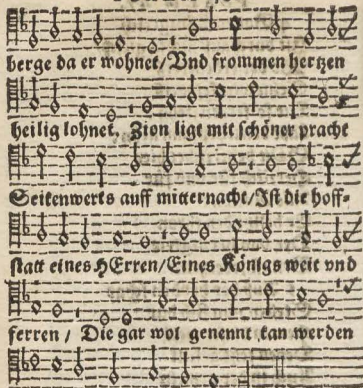 berge da er wohnet/Vnd frommen hertzen
heilig lohnet. Zion ligt mit schöner pracht
Seitenwerts auff mitternacht/Ist die hoff-
statt eines HErren/Eines Königs weit vnd
ferren / Die gar wol genennt kan werden